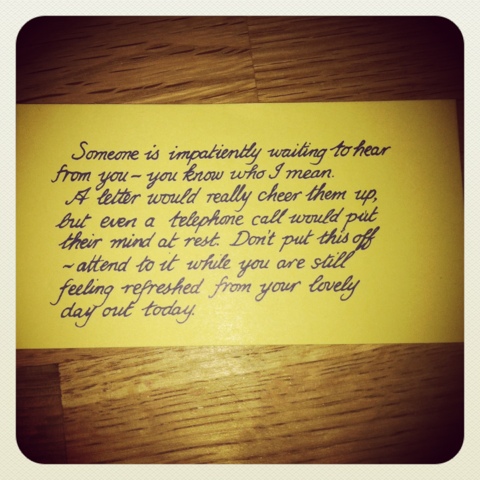 Someone is impatiently waiting to hear
from you - you know who I mean.
A letter would really cheer them up,
but even a telephone call would put
their mind at rest. Don't put this off
- attend to it while you are still
feeling refreshed from your lovely
day out today.